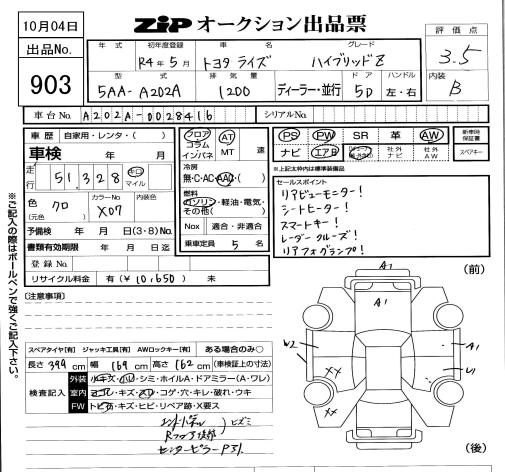 10月04日
ZIP オークション出品票
出品No.
903
年式 初年度登録 車名 グレード
R4年5月 トヨタ ライズ ハイブリッドZ
型式 排気量 ドア ハンドル
5AA-A202A 1200 ディーラー・並行 5D 左・右
評価点
3.5
内装
B
車台No. A202A-0028416 シリアルNo.
車歴 自家用・レンタ・( )
車検 年 月
走行 51,328 キロ マイル
色 クロ (元色) カラーNo X07 内装色
予備検 年 月 日(3・8)No.
書類有効期限 年 月 日迄
登録No
リサイクル料金 有(¥10,650) 未
フロア コラム インパネ AT MT 速
冷房
無・C・AC・AAC( )
燃料
ガソリン・軽油・電気・その他( )
Nox 適合・非適合
乗車定員 5 名
PS PW SR 革 AW
ナビ エアB 社外ナビ 社外AW
新車時保証書
スペアキー
※上記太枠内は標準装備品
セールスポイント
リアビューモニター!
シートヒーター!
スマートキー!
レーダークルーズ!
リアフォグランプ!
※ご記入の際はボールペンで強くご記入下さい。
[注意事項]
スペアタイヤ[有] ジャッキ工具[有] AWロックキー[有] ある場合のみ○
長さ 399 cm 幅 169 cm 高さ 162 cm (車検証上の寸法)
検査記入
外装 小キズ・小凹・シミ・ホイルA・ドアミラー(A・ワレ)
室内 ヨゴレ・キズ・スレ・コゲ・穴・キレ・破れ・ウキ
FW トビ石・キズ・ヒビ・リペア跡・X要ス
センターピラーP 31.
ヒズミ
(前)
A1
A1
W2
A1
U1
XX
XX
(後)